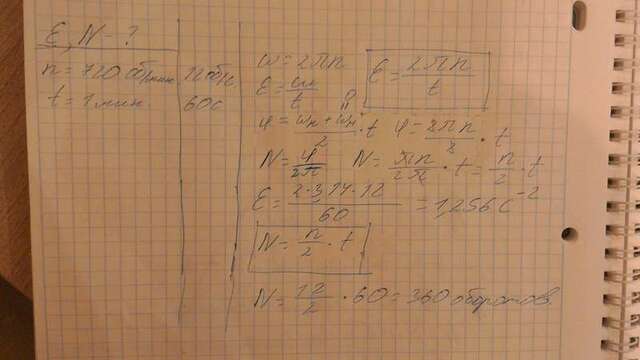 ε, N - ?
n = 720 об/мин. 12 об/с
t = 1 мин. 60 с
ω = 2πn
ε = ω/t
ε = 2πn/t
φ = (ωк + ωн)/2 · t φ = 2πn/2 · t
N = φ/2π N = πn/2π · t = n/2 · t
ε = 2·3,14·12/60 = 1,256 с⁻²
N = n/2 · t
N = 12/2 · 60 = 360 оборотов.